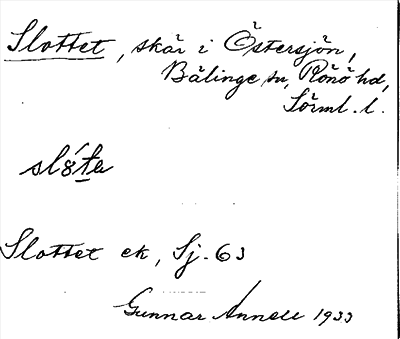 Slottet, skär i Östersjön,
Bälinge sn, Rönö hd,
Sörml. l.
slò̀ta
Slottet ek, Sj. 63
Gunnar Annell 1933